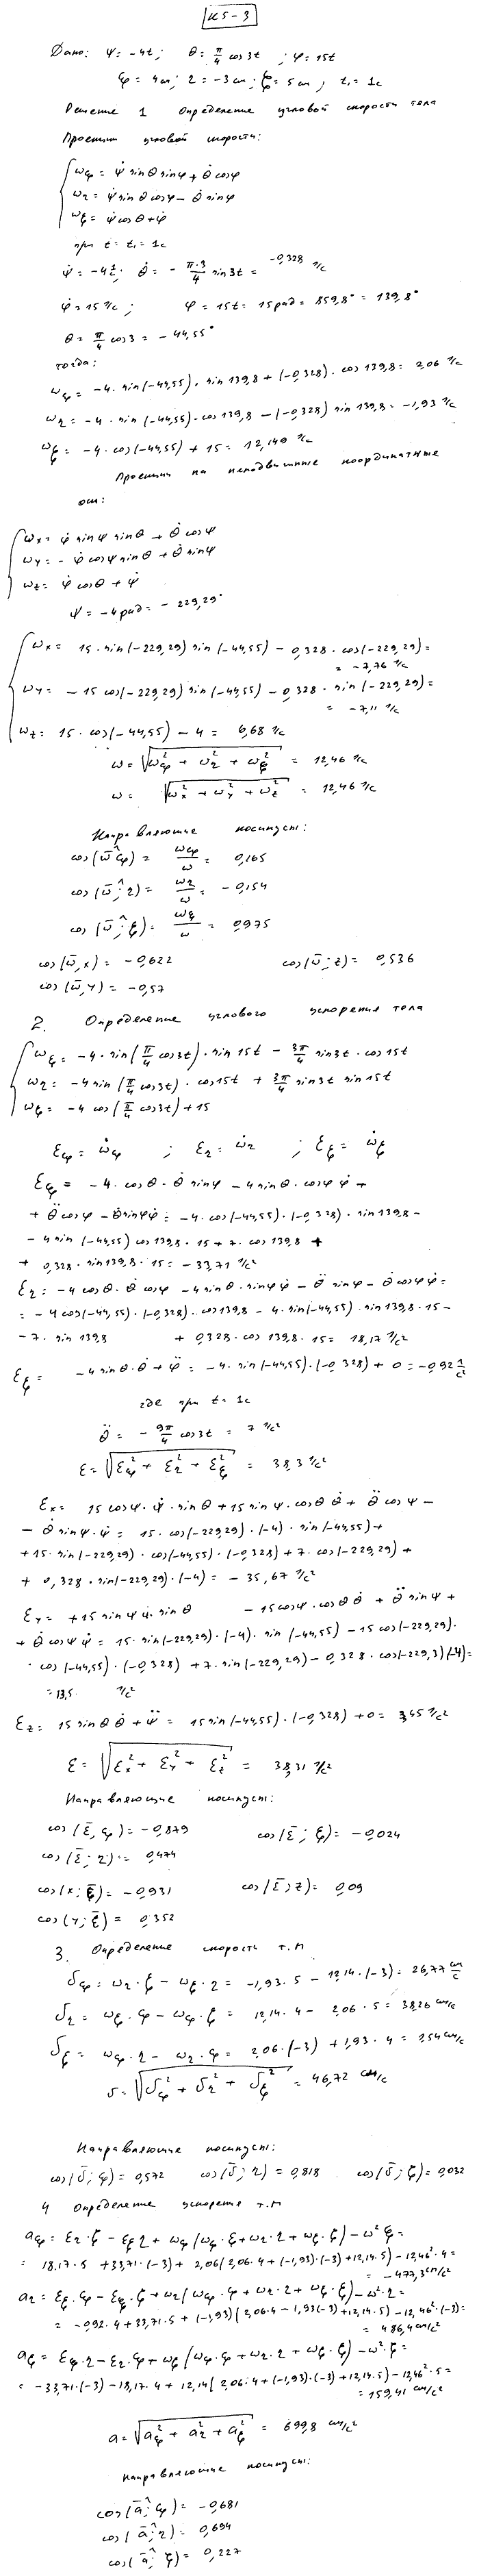 К5-3
Дано: ψ = -4t; θ = π/4 cos 3t ; φ = 15t
ξ = 4см; η = -3см; ζ = 5см; t₁ = 1с
Решение 1 Определение угловой скорости тела
Проекции угловой скорости:
ωξ = ψ̇ sinθ sinφ + θ̇ cosφ
ωη = ψ̇ sinθ cosφ - θ̇ sinφ
ωζ = ψ̇ cosθ + φ̇
при t = t₁ = 1с
θ̇ = - π·3/4 sin3t = -0,328 1/с
φ̇ = 15 1/с; φ = 15t = 15рад = 859,8° = 139,8°
θ = π/4 cos3 = -44,55°
тогда:
ωξ = -4·sin(-44,55)·sin139,8 + (-0,328)·cos139,8 = 2,06 1/с
ωη = -4·sin(-44,55)·cos139,8 - (-0,328) sin139,8 = -1,93 1/с
ωζ = -4·cos(-44,55) + 15 = 12,149 1/с
Проекции на неподвижные координатные
оси:
ωx = φ̇ sinψ sinθ + θ̇ cosψ
ωy = -φ̇ cosψ sinθ + θ̇ sinψ
ωz = φ̇ cosθ + ψ̇
ψ = -4рад = -229,29°
ωx = 15·sin(-229,29) sin(-44,55) - 0,328·cos(-229,29) =
= -7,76 1/с
ωy = -15 cos(-229,29) sin(-44,55) - 0,328·sin(-229,29) =
= -7,11 1/с
ωz = 15·cos(-44,55) - 4 = 6,68 1/с
ω = √(ωξ² + ωη² + ωζ²) = 12,46 1/с
ω = √(ωx² + ωy² + ωz²) = 12,46 1/с
Направляющие косинусы:
cos(ω̄^ξ) = ωξ/ω = 0,165
cos(ω̄;^η) = ωη/ω = -0,154
cos(ω̄;^ζ) = ωζ/ω = 0,975
cos(ω̄,x) = -0,622 cos(ω̄;z) = 0,536
cos(ω̄,y) = -0,57
2. Определение углового ускорения тела
ωξ = -4·sin(π/4 cos3t)·sin15t - 3π/4 sin3t·cos15t
ωη = -4sin(π/4 cos3t)·cos15t + 3π/4 sin3t sin15t
ωζ = -4 cos(π/4 cos3t) + 15
εξ = ω̇ξ ; εη = ω̇η ; εζ = ω̇ζ
εξ = -4·cosθ·θ̇ sinφ - 4sinθ·cosφ φ̇ +
+ θ̈ cosφ - θ̇ sinφ φ̇ = -4·cos(-44,55)·(-0,328)·sin139,8 -
- 4sin(-44,55) cos139,8·15 + 7·cos139,8 +
+ 0,328·sin139,8·15 = -33,71 1/с²
εη = -4cosθ·θ̇ cosφ - 4sinθ·sinφ φ̇ - θ̈ sinφ - θ̇ cosφ φ̇ =
= -4cos(-44,55)·(-0,328)·cos139,8 - 4·sin(-44,55)·sin139,8·15 -
- 7·sin139,8 + 0,328·cos139,8·15 = 18,17 1/с²
εζ = -4sinθ·θ̇ + φ̈ = -4·sin(-44,55)·(-0,328) + 0 = -0,92 1/с²
где при t = 1с
θ̈ = - 9π/4 cos3t = 7 1/с²
ε = √(εξ² + εη² + εζ²) = 38,3 1/с²
εx = 15cosψ·ψ̇·sinθ + 15sinψ·cosθ θ̇ + θ̈ cosψ -
- θ̇ sinψ·ψ̇ = 15·cos(-229,29)·(-4)·sin(-44,55) +
+ 15·sin(-229,29)·cos(-44,55)·(-0,328) + 7·cos(-229,29) +
+ 0,328·sin(-229,29)·(-4) = -35,67 1/с²
εy = +15sinψ ψ̇·sinθ - 15cosψ·cosθ θ̇ + θ̈ sinψ +
+ θ̇ cosψ ψ̇ = 15·sin(-229,29)·(-4)·sin(-44,55) - 15cos(-229,29)·
·cos(-44,55)·(-0,328) + 7·sin(-229,29) - 0,328·cos(-229,3)(-4) =
= 13,5 1/с²
εz = 15sinθ θ̇ + ψ̈ = 15sin(-44,55)·(-0,328) + 0 = 3,45 1/с²
ε = √(εx² + εy² + εz²) = 38,31 1/с²
Направляющие косинусы:
cos(ε̄, ξ) = -0,879 cos(ε̄; ζ) = -0,024
cos(ε̄; η) = 0,474
cos(x; ε̄) = -0,931 cos(ε̄; z) = 0,09
cos(y; ε̄) = 0,352
3. Определение скорость т. М
υξ = ωη·ζ - ωζ·η = -1,93·5 - 12,14·(-3) = 26,77 см/с
υη = ωζ·ξ - ωξ·ζ = 12,14·4 - 2,06·5 = 38,26 см/с
υζ = ωξ·η - ωη·ξ = 2,06·(-3) + 1,93·4 = 1,54 см/с
υ = √(υξ² + υη² + υζ²) = 46,72 см/с
Направляющие косинусы:
cos(ῡ; ξ) = 0,572 cos(ῡ; η) = 0,818 cos(ῡ; ζ) = 0,032
4 Определение ускорения т. М
aξ = εη·ζ - εζ η + ωξ(ωξ·ξ + ωη·η + ωζ·ζ) - ω² ξ =
= 18,17·5 + 33,71·(-3) + 2,06(2,06·4 + (-1,93)·(-3) + 12,14·5) - 12,46²·4 =
= -477,3 см/с²
aη = εζ·ξ - εξ·ζ + ωη(ωξ·ξ + ωη·η + ωζ·ζ) - ω²·η =
= -0,92·4 + 33,71·5 + (-1,93)(2,06·4 - 1,93(-3) + 12,14·5) - 12,46²·(-3) =
= 486,4 см/с²
aζ = εξ·η - εη·ξ + ωζ(ωξ·ξ + ωη·η + ωζ·ζ) - ω²·ζ =
= -33,71·(-3) - 18,17·4 + 12,14(2,06·4 + (-1,93)·(-3) + 12,14·5) - 12,46²·5 =
= 159,41 см/с²
a = √(aξ² + aη² + aζ²) = 699,8 см/с²
Направляющие косинусы:
cos(ā;^ξ) = -0,681
cos(ā;^η) = 0,694
cos(ā;^ζ) = 0,227